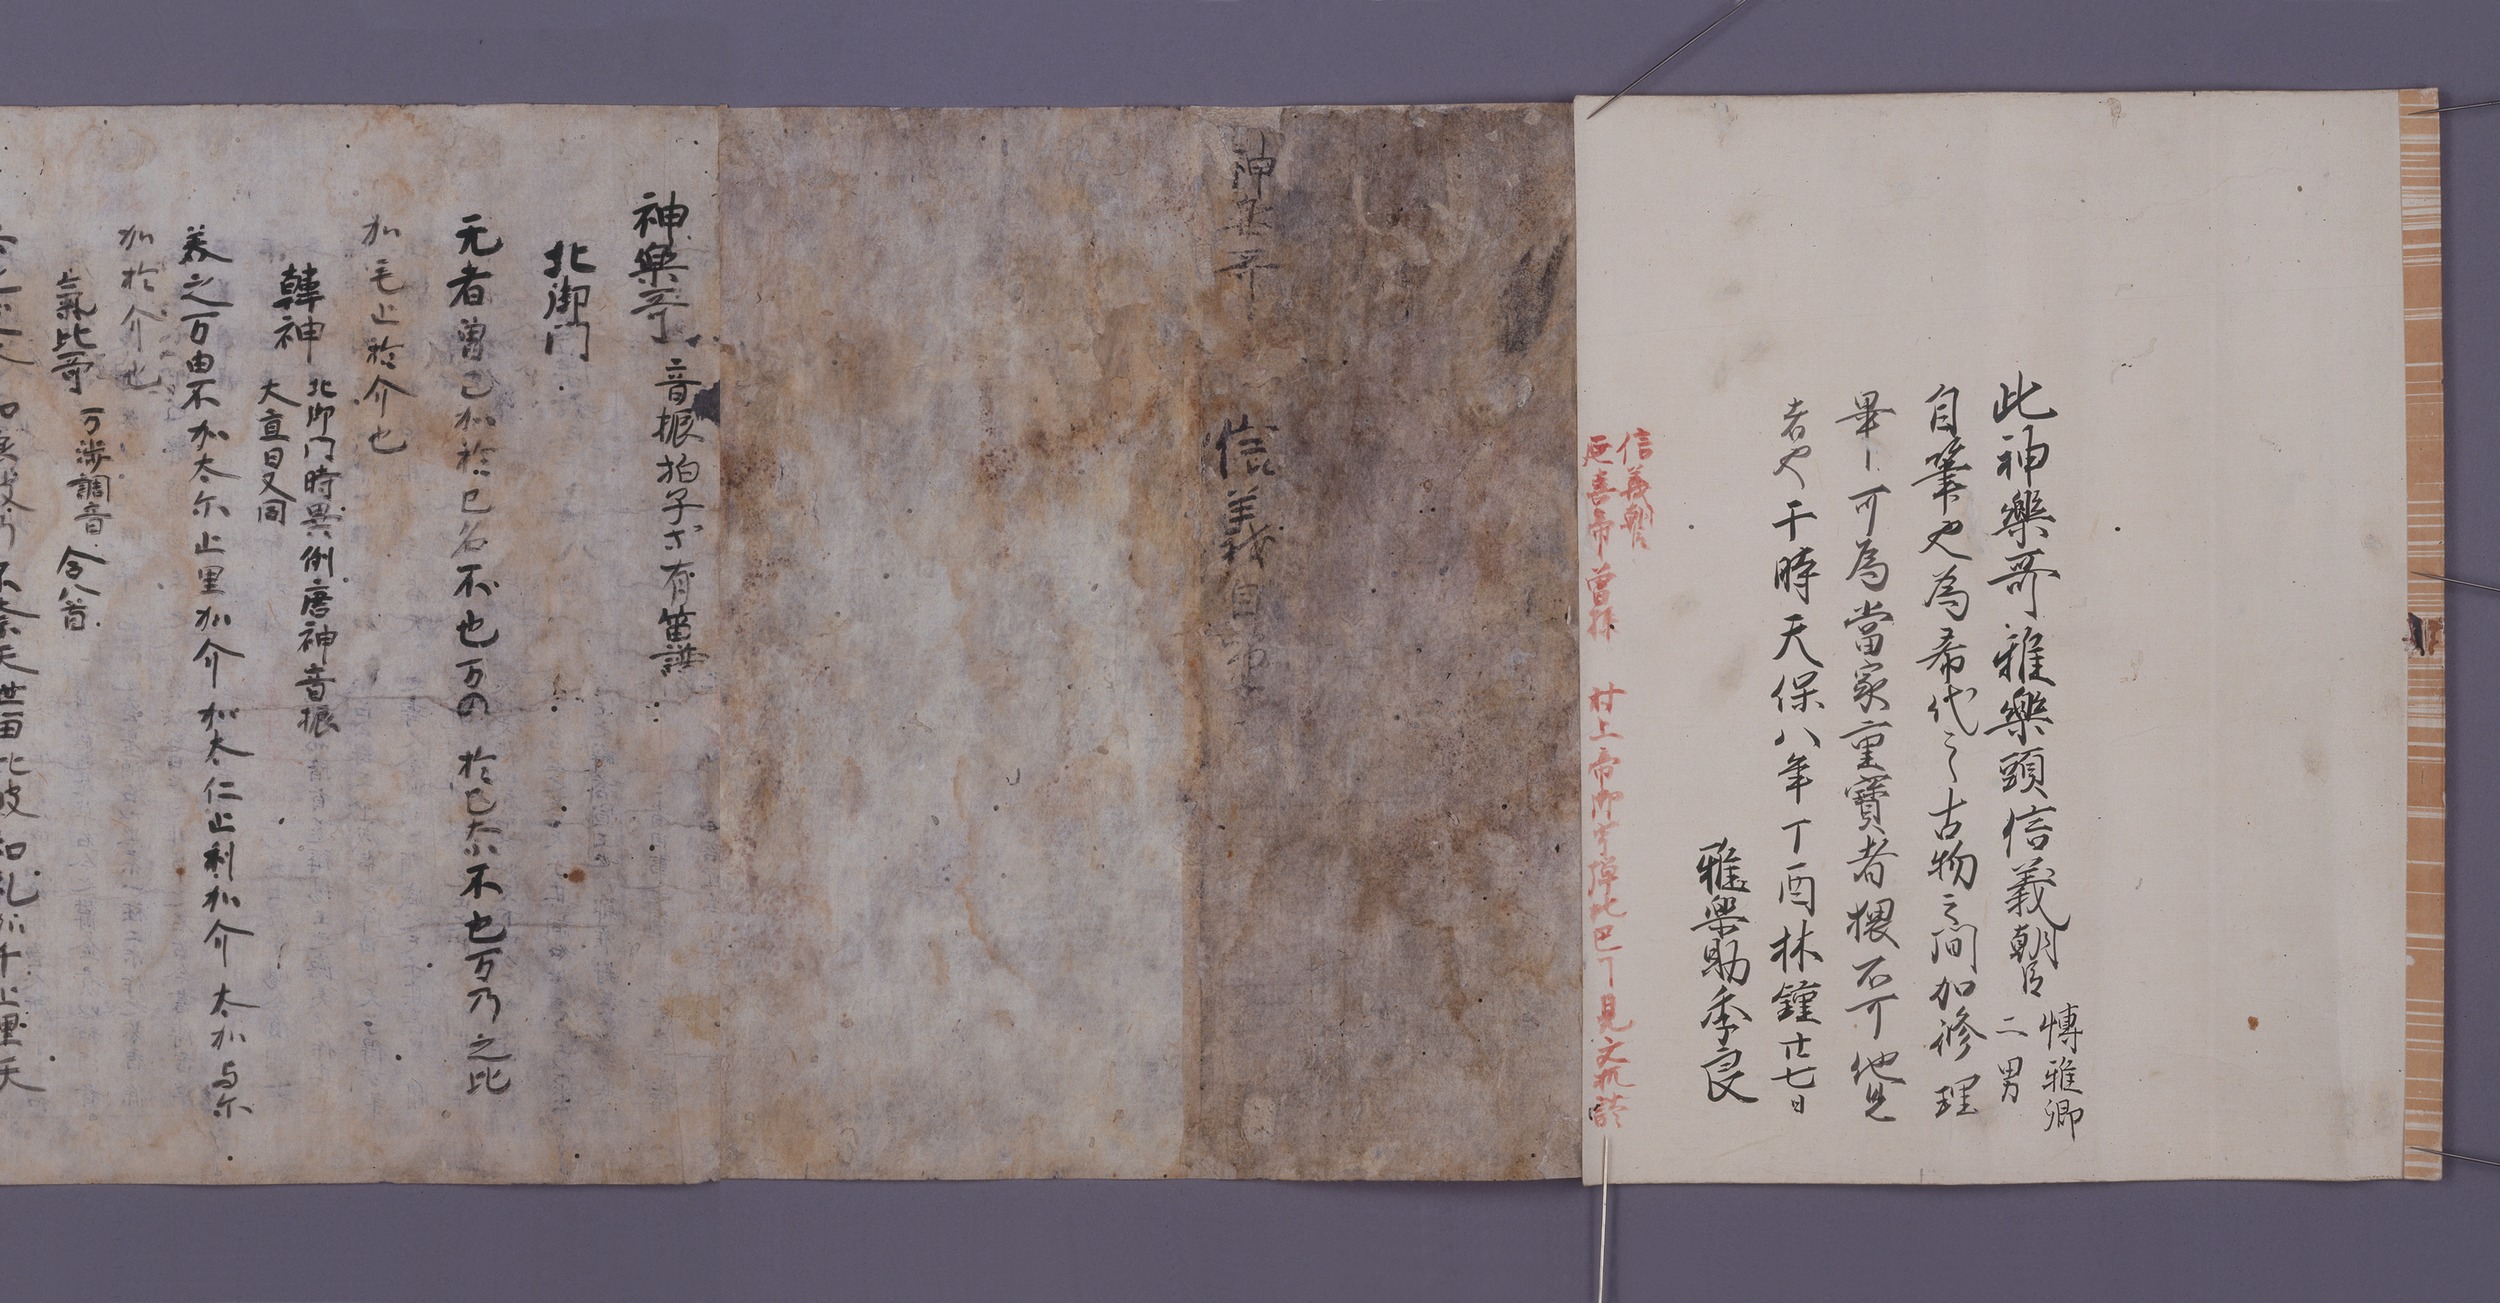 此神樂哥雅樂頭信義朝臣 博雅卿
二男
自筆也為希代之古物之間加修理
畢可為當家重寳者猥不可他見
者也于時天保八年丁酉林鐘廿七日
雅樂助季良
信義朝臣
延喜帝曾孫 村上帝御宇 見文机談
神楽哥
信義自筆
神樂哥 音振拍子等有笛譜
北御門
元者曽己加於己名不也万の 於己奈不也万乃之比
加毛止於介也
韓神 北御門時異例唐神音振
大直日又同
美之万由不加太尓止里加介加太仁止利加介 太加与尓
加於介也
氣比哥 万渉調音 合八首